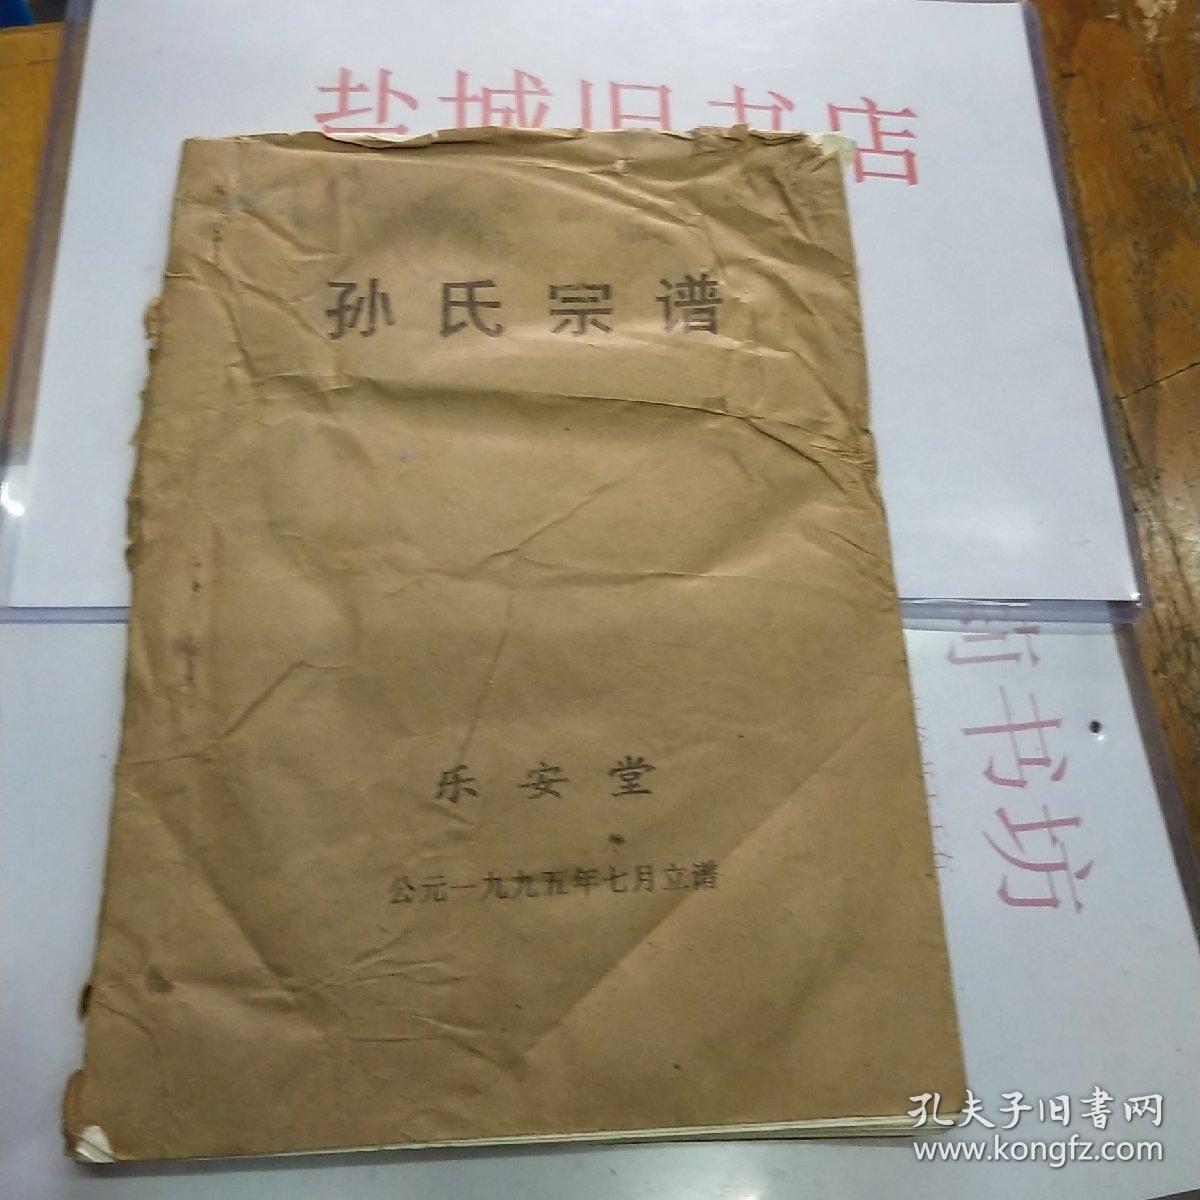 盐城旧书店
孙氏宗谱
乐安堂
公元一九九五年七月立谱
书坊
孔夫子旧書网
www.kongfz.com